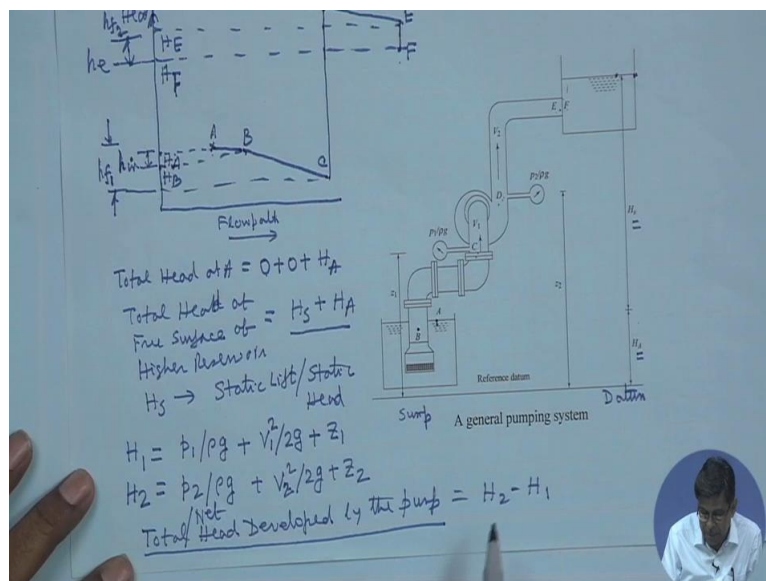 hf2 Head
E
HE
he
F
HF
A
B
hf1 hin HA
HB
C
Flowpath
Total Head at A = 0+0+HA
Total Head at
Free Surface of = Hs + HA
Higher Reservoir
Hs → Static Lift/Static
Head
H1 = p1/ρg + V1²/2g + Z1
H2 = p2/ρg + V2²/2g + Z2
Total/Net Head Developed by the pump = H2 - H1
E F
V2
D
p2/ρg
Hs
V1
p1/ρg
C
z1
z2
A
B
HA
Reference datum
Sump
Datum
A general pumping system